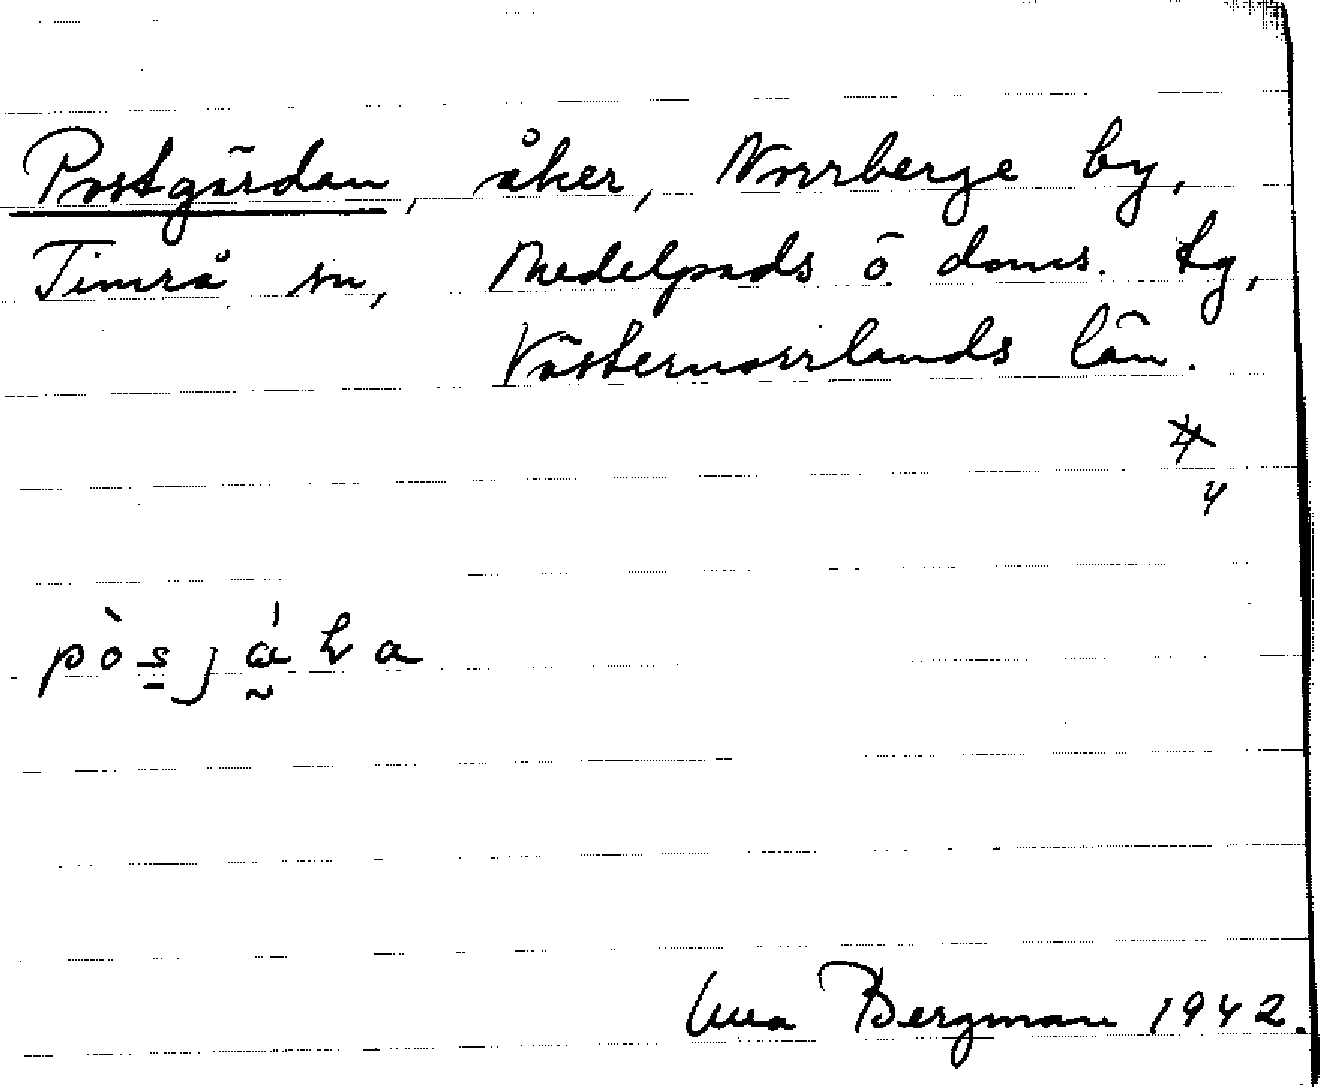 Postgärdan, åker, Norrberge by,
Timrå sn, Medelpads ö doms. tg,
Västernorrlands län.
4
Bergman 1942.